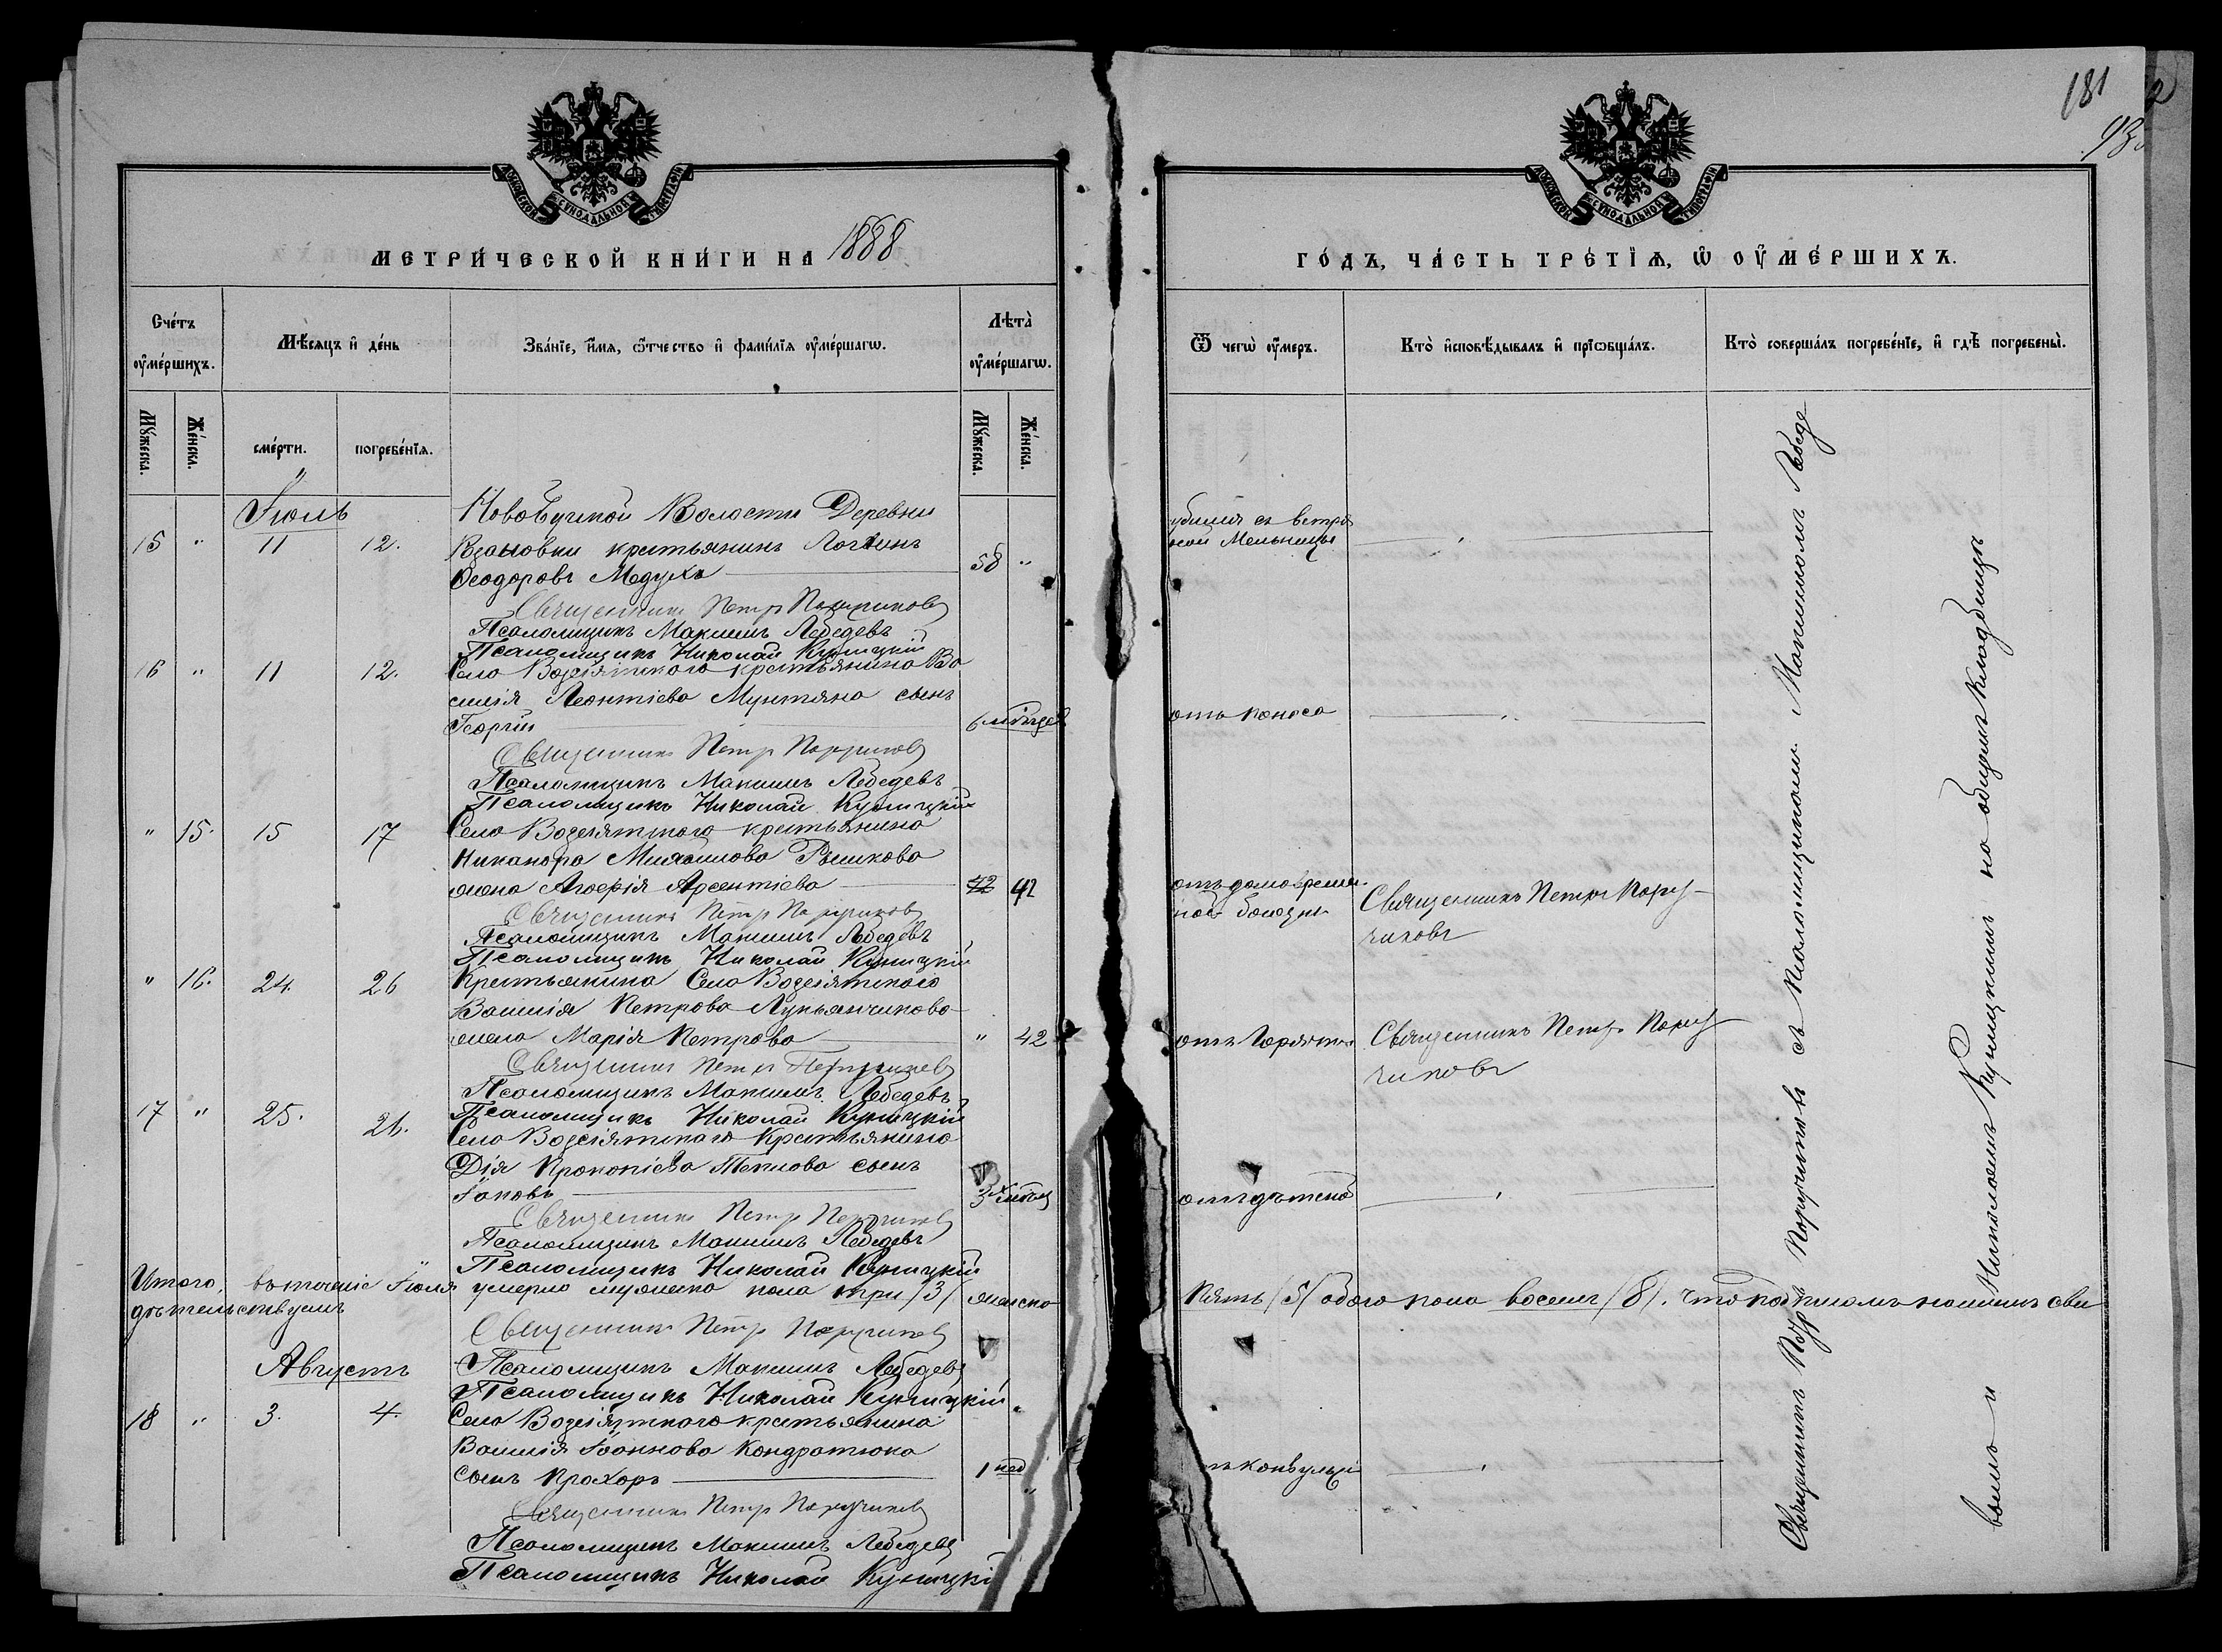 181
93
МОСКОВСКОЙ СѴНОДАЛЬНОЙ ТИПОГРАФІИ
МОСКОВСКОЙ СѴНОДАЛЬНОЙ ТИПОГРАФІИ
МЕТРИ́ЧЕСКОЙ КНИ́ГИ НА 1888
ГО́ДЪ, ЧА́СТЬ ТРЕ́ТІѦ, Ѡ ОУ҆МЕ́РШИХЪ.
Сче́тъ оу҆ме́ршихъ.
Мѣ́сяцъ и҆ де́нь
Зва́нїе, и҆́мя, ѻ҆́тчество и҆ фами́лїя оу҆ме́ршагѡ.
Лѣ́та оу҆ме́ршагѡ.
Ѿ чегѡ̀ оу҆́меръ.
Кто̀ и҆сповѣ́дывалъ и҆ прїѡбща́лъ.
Кто̀ соверша́лъ погребе́нїе, и҆ гдѣ̀ погребены̀.
Мꙋ́жеска.
Же́нска.
сме́рти.
погребе́нїя.
Мꙋ́жеска.
Же́нска.
Іюль
Новобугской Волости Деревни
15 " 11 12. крестьянинъ Логвинъ
Ѳеодоровъ Медуха 58 "
убился съ ветря
ной Мельницы
Священникъ Петръ Поручиковъ
Псаломщикъ Максимъ Лебедевъ
Псаломщикъ Николай Куницкій
16 " 11 12. Села Возсіятского крестьянина Ва
силія Леонтіева Мунтяна сынъ
Георгій 6 месяцев отъ поноса
Священникъ Петръ Поручиковъ
Псаломщикъ Максимъ Лебедевъ
Псаломщикъ Николай Куницкій
" 15. 15 17 Села Возсіятского крестьянина
Никанора Михаилова Рышкова
жена Агафія Арсентіева 42 42
отъ долговремен
ной болезни Священникъ Петръ Пору
чиковъ
Священникъ Петръ Поручиковъ
Псаломщикъ Максимъ Лебедевъ
Псаломщикъ Николай Куницкій
" 16. 24. 26 Крестьянина Села Возсіятского
Василія Петрова Лукьянчикова
жена Марія Петрова " 42
отъ Горячки Священникъ Петръ Пору
чиковъ
Священникъ Петръ Поручиковъ
Псаломщикъ Максимъ Лебедевъ
Псаломщикъ Николай Куницкій
17 " 25. 26. Села Возсіятского Крестьянина
Дія Прокопіева Теплова сынъ
Іаковъ 3 отъ дѣтской
Священникъ Петръ Поручиковъ
Псаломщикъ Максимъ Лебедевъ
Псаломщикъ Николай Куницкій
Итого, въ теченіе Іюля умерло мужеска пола три /3/ женска пять /5/ обоего пола восемь /8/. Что подписомъ нашимъ сви
дѣтельствуемъ
Священникъ Петръ Поручиковъ
Псаломщикъ Максимъ Лебедевъ
Псаломщикъ Николай Куницкій
Августъ
18 " 3. 4. Села Возсіятского крестьянина
Василія Іоаннова Кондратюка
сынъ Прохоръ 1 нед конвульсі
Священникъ Петръ Поручиковъ
Псаломщикъ Максимъ Лебедевъ
Псаломщикъ Николай Куницкій
Священникъ Петръ Поручиковъ съ Псаломщиками Максимомъ Лебеде
вымъ и Николаемъ Куницкимъ на общемъ кладбищѣ